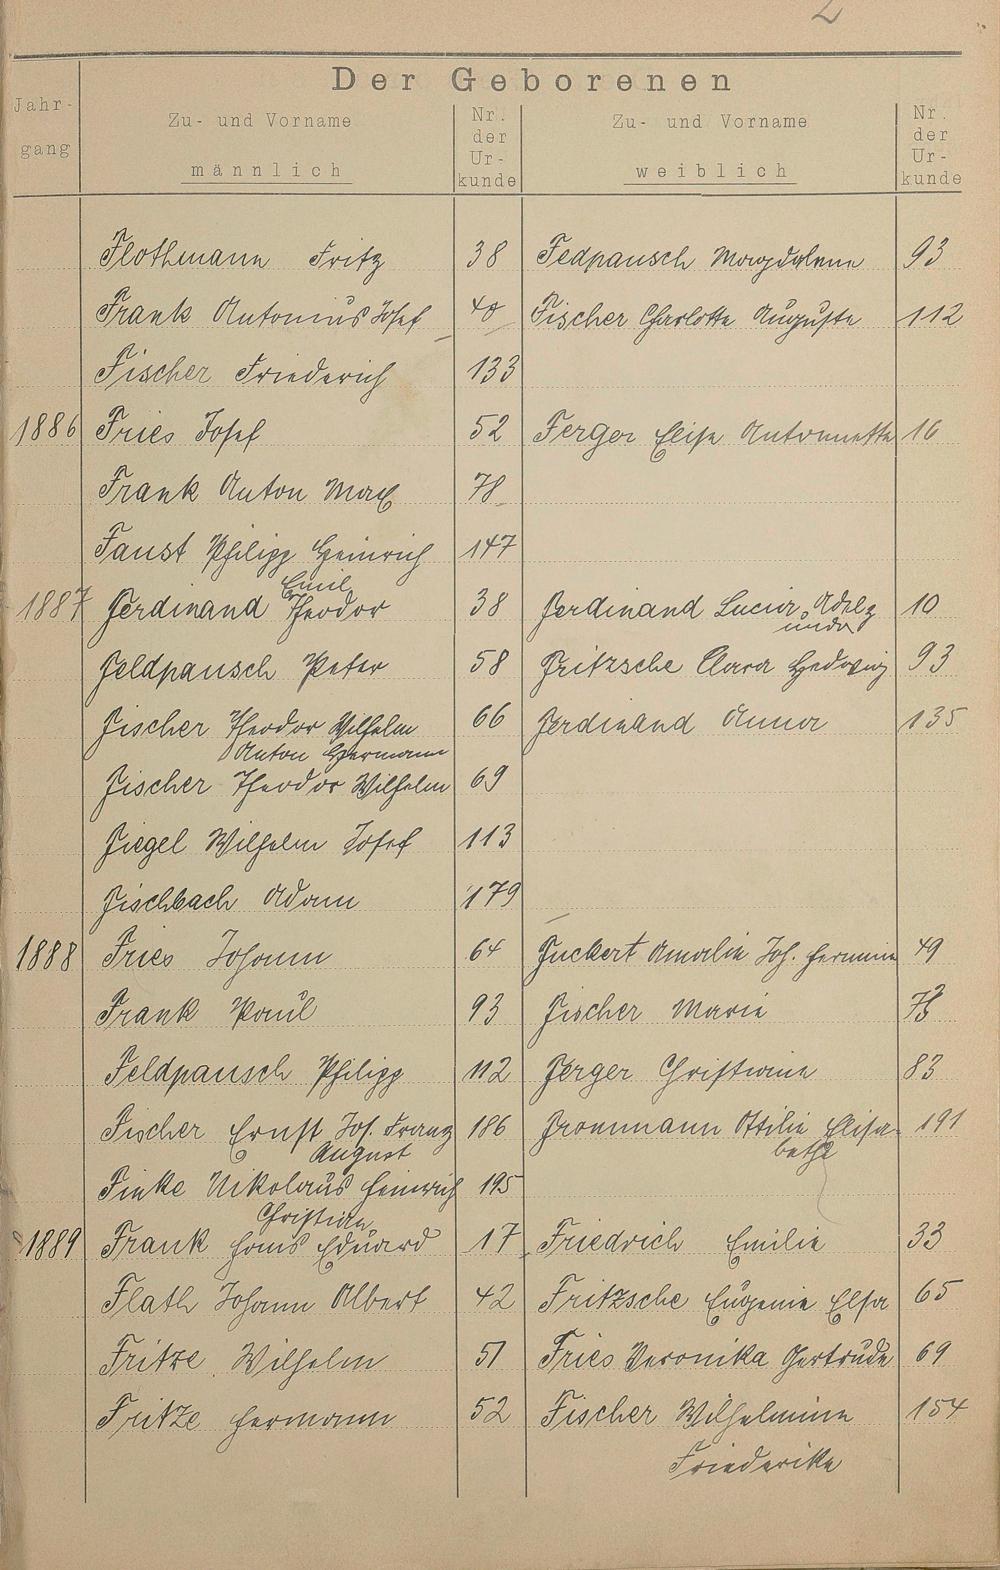 2
Der Geborenen
Jahr-
gang
Zu- und Vorname
männlich
Nr.
der
Ur-
kunde
Zu- und Vorname
weiblich
Nr.
der
Ur-
kunde
Flothmann Fritz 38 Fedpausch Magdalena 93
Frank Antonius Josef 40 Fischer Charlotte Auguste 112
Fischer Friederich 133
1886 Fries Josef 52 Ferger Elise Antonnette 16
Frank Anton Max 78
Faust Philipp Heinrich 147
Emil
1887 Ferdinand Theodor 38 Ferdinand Lucia Adelg 10
unda
Feldpausch Peter 58 Fritzsche Clara Hedwig 93
Fischer Theodor Wilhelm 66 Ferdinand Anna 135
Anton Hermann
Fischer Theodor Wilhelm 69
Fiegel Wilhelm Josef 113
Fischbach Adam 179
1888 Fries Johann 64 Fuckert Amalie Joh. Hermine 49
Frank Paul 93 Fischer Marie
Feldpausch Philipp 112 Ferger Christiane 83
Fischer Ernst Jos. Franz 186 Frommann Ottilie Elisa- 191
August bethe
Finke Nikolaus Heinrich 195
Christian
1889 Frank Hans Eduard 17 Friedrich Emilie 33
Flath Johann Albert 42 Fritzsche Eugenie Elsa 65
Fritze Wilhelm 51 Fries Veronika Gertrude 69
Fritze Hermann 52 Fischer Wilhelmine 154
Friederike